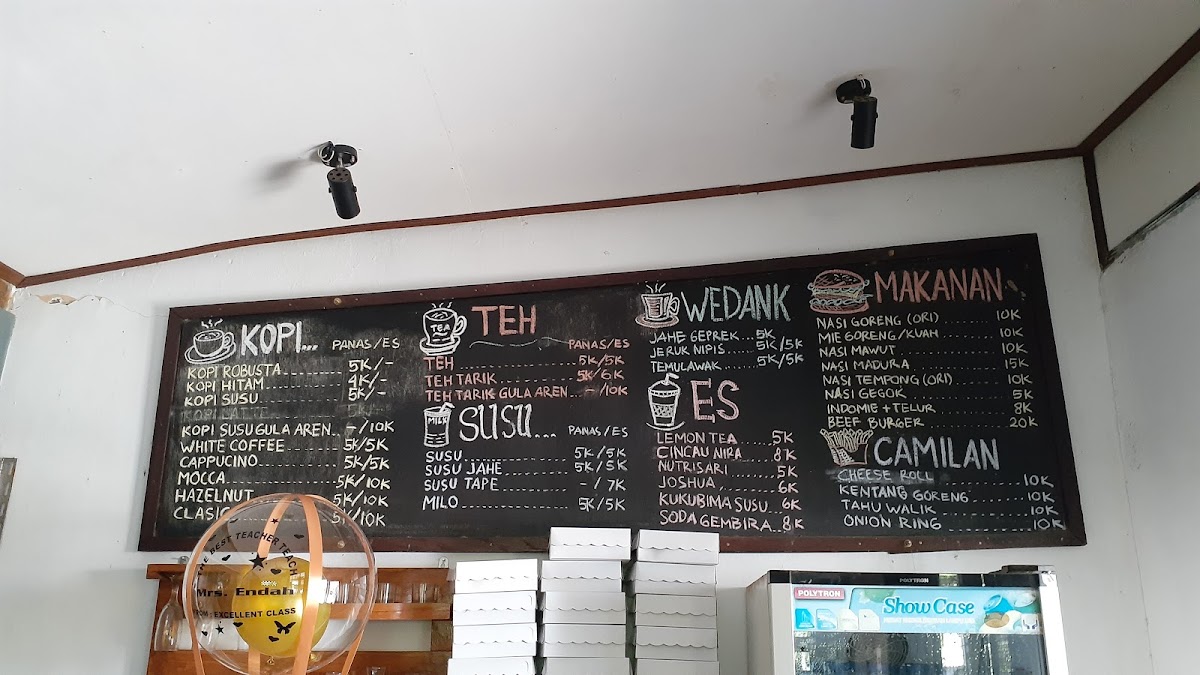 KOPI...
PANAS/ES
KOPI ROBUSTA 5K/-
KOPI HITAM 4K/-
KOPI SUSU 5K/-
KOPI SUSU GULA AREN -/10K
WHITE COFFEE 5K/5K
CAPPUCINO 5K/5K
MOCCA 5K/10K
HAZELNUT 5K/10K
CLASIC 5K/10K
TEA
TEH
PANAS/ES
TEH 5K/5K
TEH TARIK 5K/6K
TEH TARIK GULA AREN -/10K
MILK
SUSU...
PANAS/ES
SUSU 5K/5K
SUSU JAHE 5K/5K
SUSU TAPE -/7K
MILO 5K/5K
WEDANK
JAHE GEPREK 5K
JERUK NIPIS 5K/5K
TEMULAWAK 5K/5K
ES
LEMON TEA 5K
CINCAU NIRA 8K
NUTRISARI 5K
JOSHUA 6K
KUKUBIMA SUSU 6K
SODA GEMBIRA 8K
MAKANAN
NASI GORENG (ORI) 10K
MIE GORENG/KUAH 10K
NASI MAWUT 10K
NASI MADURA 15K
NASI TEMPONG (ORI) 10K
NASI GEGOK 5K
INDOMIE + TELUR 8K
BEEF BURGER 20K
CAMILAN
CHEESE ROLL 10K
KENTANG GORENG 10K
TAHU WALIK 10K
ONION RING 10K
THE BEST TEACHER TEACH
Mrs. Endah
EXCELLENT CLASS
POLYTRON
POLYTRON
ShowCase